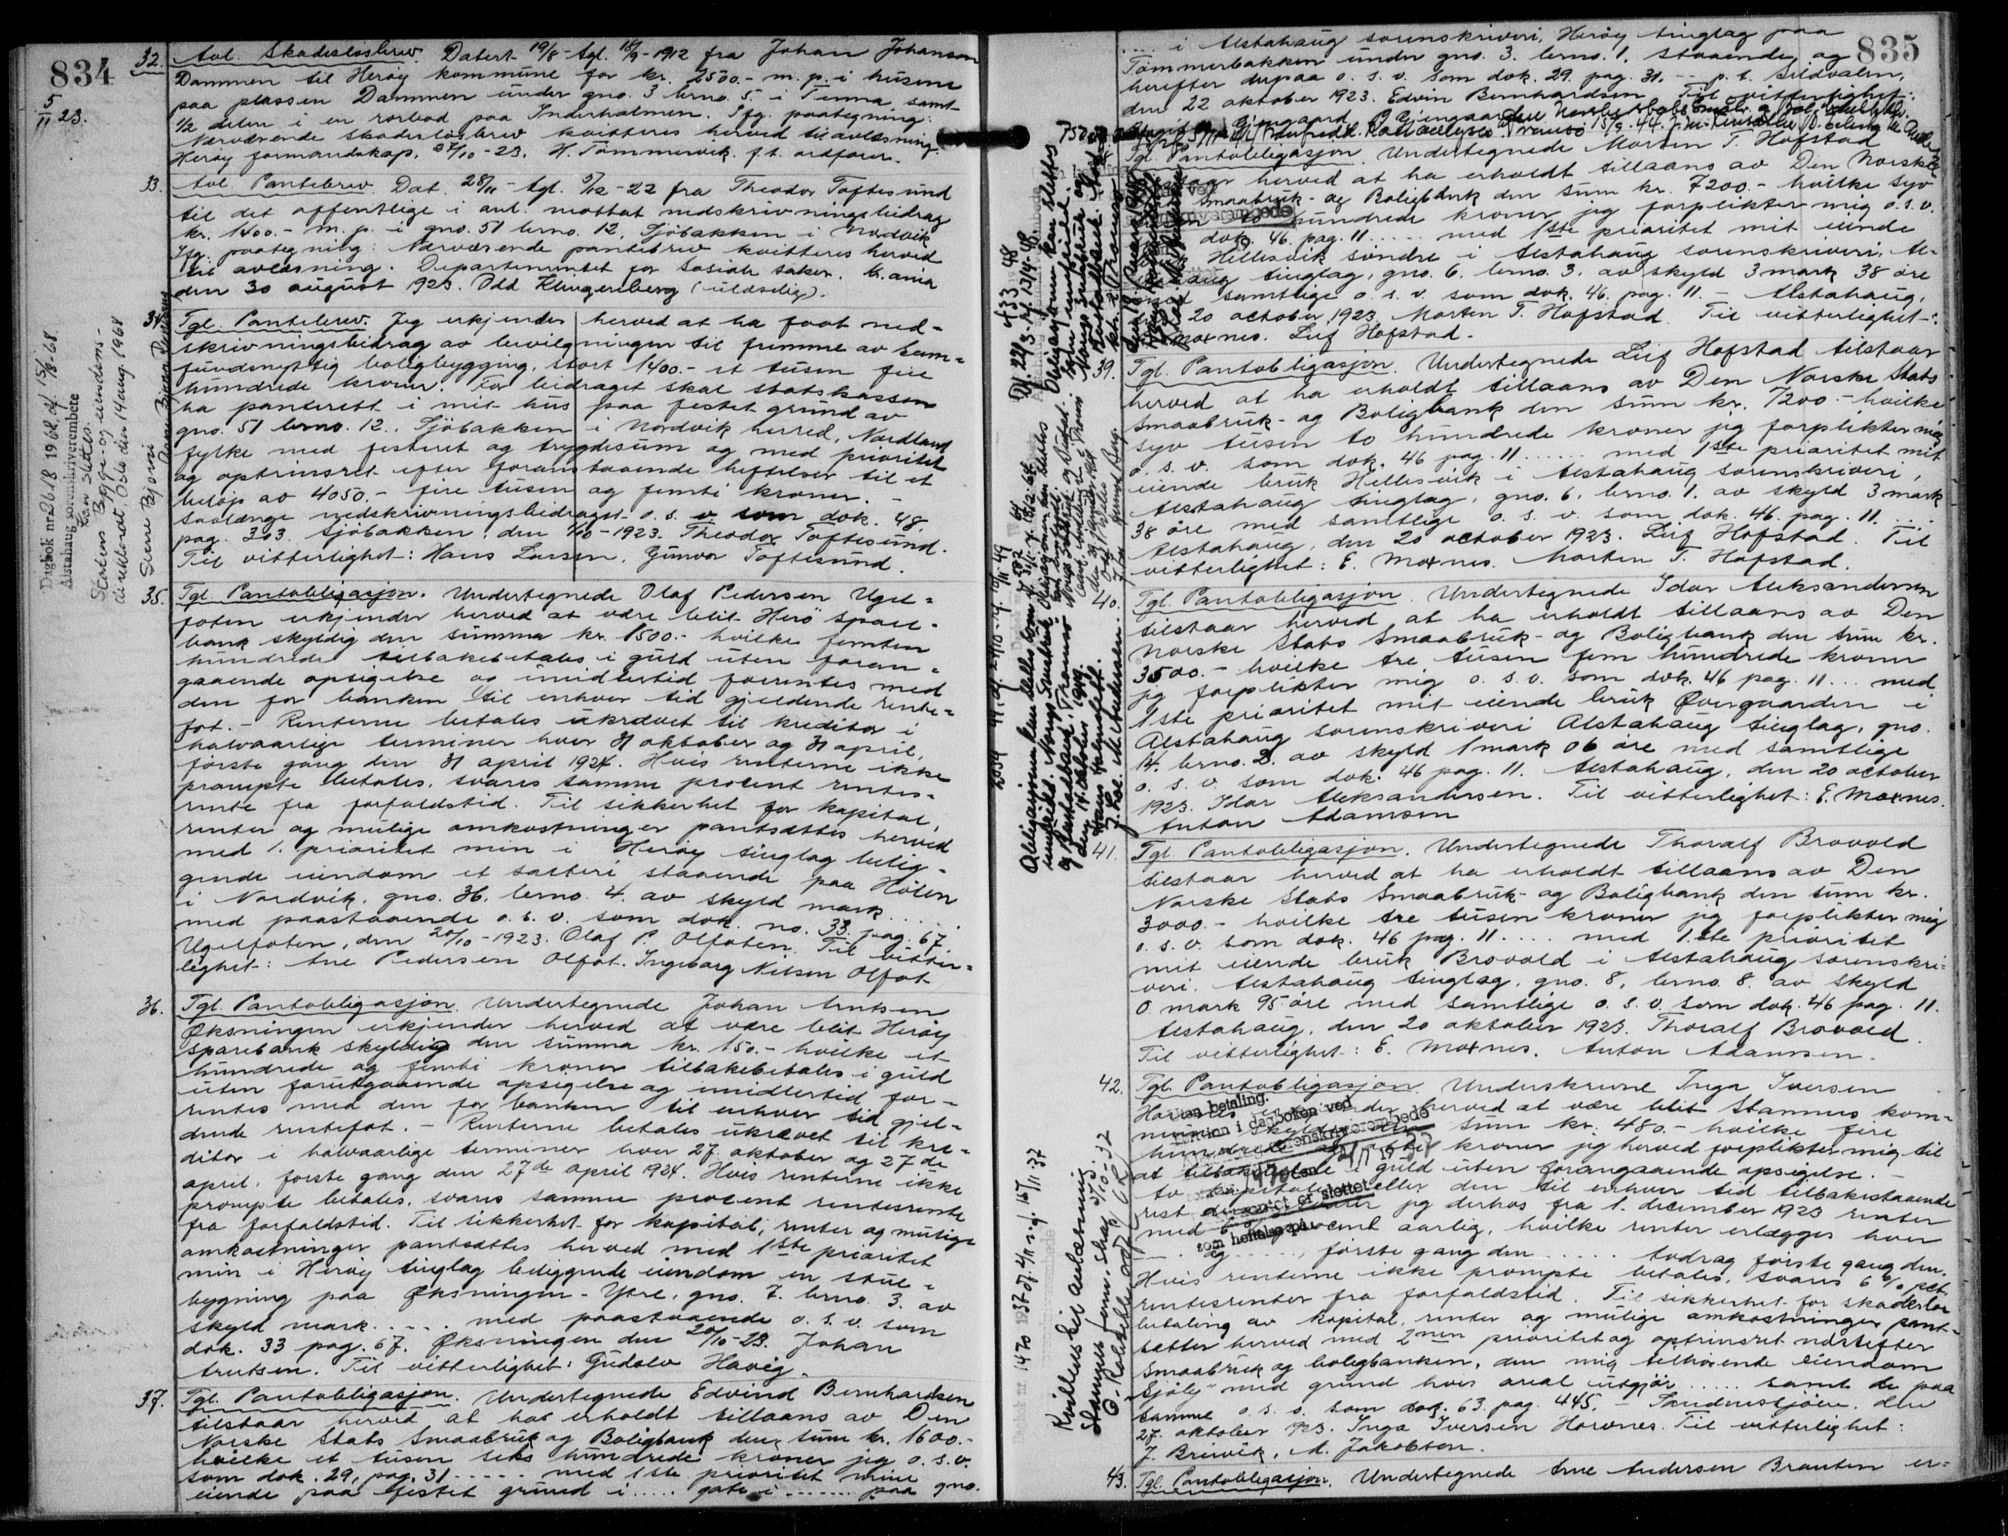 834
5/11 23.
32. Avl. Skadesløsbrev. Datert 19/8 - tgl. 18/9 - 1912 fra Johan Johanson
Dammen til Herøy kommune for kr. 2500.- m. p. i husene
paa plassen Dammen under gno. 3 brno. 5. i Tenna samt
1/2 delen i en rorbod paa Inderholmen. Ifg. paategning:
Nærværende skadesløsbrev kvitteres herved til avlæsning.
Herøy formandskap, 27/10 - 23. H. Tømmervik, f.t. ordfører.
33. Avl. Pantebrev. Dat. 28/11 - tgl. 5/12 - 22 fra Theodor Toftesund
til det offentlige i anl. mottat nedskrivningsbidrag
kr. 1400.- m. p. i gno. 51 brno. 12, Sjøbakken i Nordvik
Ifg. paategning: Nærværende pantebrev kvitteres herved
til avlæsning. Departementet for Sosiale saker. Kr.ania
den 30 august 1923. Odd Klingenberg (ulæselig).
34. Tgl. Pantebrev. Jeg erkjender herved at ha faat ned-
skrivningsbidrag av bevilgningen til fremme av sam-
fundsnyttig boligbygging, stort 1400.- et tusen fire
hundrede kroner. For bidraget skal statskassen
ha panterett i mit hus paa festet grund av
gno. 51 brno. 12. Sjøbakken i Nordvik herred, Nordland
fylke med festeret og trygdesum og med prioritet
og optrinsret efter foranstaaende heftelser til et
beløp av 4050.- fire tusen og femti kroner. -
Saalænge nedskrivningsbidraget o. s. v. som dok. 48.
pag. 363. Sjøbakken, den 1/10 - 1923. Theodor Toftesund.
Til vitterlighet: Hans Larsen, Gunvor Toftesund.
35. Tgl. Pantobligasjon. Undertegnede Olaf Pedersen Ugel-
foten erkjender herved at være blit Herø spare-
bank skyldig den summa kr. 1500.- hvilke femten
hundrede tilbakebetales i guld uten foran-
gaaende opsigelse og imidlertid forrentes med
den for banken til enhver tid gjeldende rente-
fot. - Renterne betales ukrævet til kreditor i
halvaarlige terminer hver 31 oktober og 31 april,
første gang den 31 april 1924. Hvis renterne ikke
prompte betales, svares samme procent rentes-
rente fra forfaldstid. Til sikkerhet for kapital,
renter og mulige omkostninger pantsættes herved
med 1. prioritet min i Herøy tinglag belig-
gende eiendom et salteri staaende paa Holen
i Nordvik, gno. 36. brno. 4. av skyld mark....
med paastaaende o. s. v. som dok. no. 33 pag. 67.
Ugelfoten, den 20/10 - 1923. Olaf P. Olfoten. Til vitter-
lighet: Ane Pedersen Olfot. Ingeborg Nilsen Olfot
36. Tgl. Pantobligasjon. Undertegnede Johan Arntsen
Øksningen erkjender herved at være blit Herøy
sparebank skyldig den summa kr. 150.- hvilke et
hundrede og femti kroner tilbakebetales i guld
uten forutgaaende opsigelse og imidlertid for-
rentes med den for banken til enhver tid gjel-
dende rentefot. - Renterne betales ukrævet til kre-
ditor i halvaarlige terminer hver 27. oktober og 27de
april, første gang den 27de april 1924. Hvis renterne ikke
prompte betales, svares samme procent rentesrente
fra forfaldstid. Til sikkerhet for kapital, renter og mulige
omkostninger pantsættes herved med 1ste prioritet
min i Herøy tinglag beliggende eiendom en stue-
bygning paa Øksningen - Ytre, gno. 7. brno. 3. av
skyld mark..... med paastaaende o. s. v. som
dok. 33 pag. 67. Øksningen den 20/10 - 23. Johan
Arntsen. Til vitterlighet: Gudolv Havig.
37. Tgl. Pantobligasjon. Undertegnede Edvind Bernhardsen
tilstaar herved at ha erholdt tillaans av Den
Norske Stats Smaabruk og Boligbank den sum kr. 1600.-
hvilke et tusen seks hundrede kroner jeg o. s. v.
som dok. 29, pag. 31 ..... med 1ste prioritet mine
eiende paa festet grund i ..... gate i ....... paa gno.
Dagbok nr. 2618 1968, af 15/8 68
Alstahaug sorenskriverembete
Kan slettes.
Statens Bygge- og eiendoms-
direktorat, Oslo den 14 aug. 1968
835
.... i Alstahaug sorenskriveri, Herøy tinglag paa
Tømmerbakken under gno. 3. brno. 1, staaende og
herefter derpaa o. s. v. som dok. 29. pag. 31, -- p. t. Sildvalen,
den 22 oktober 1923. Edvin Bernhardsen. Til vitterlighet:
Tgl. Pantobligasjon. Undertegnede Morten T. Hofstad
herved at ha erholdt tillaans av Den Norske
Smaabruk- og Boligbank den sum kr. 7200.- hvilke syv
hundrede kroner jeg forplikter mig o. s. v.
dok. 46. pag. 11 ..... med 1ste prioritet mit eiende
Hellesvik søndre i Alstahaug sorenskriveri, Al-
tinglag, gno. 6. brno. 3. av skyld 3 mark 38 øre
samtlige o. s. v. som dok. 46. pag. 11. - Alstahaug,
20 october 1923. Morten T. Hofstad. Til vitterlighet:
Moxnes. Leif Hofstad.
39. Tgl. Pantobligasjon. Undertegnede Leif Hofstad tilstaar
herved at ha erholdt tillaans av Den Norske Stats
Smaabruk- og Boligbank den sum kr. 7200.- hvilke
syv tusen to hundrede kroner jeg forplikter mig
o. s. v. som dok. 46 pag. 11 ...... med 1ste prioritet mit
eiende bruk Hellesvik i Alstahaug sorenskriveri,
Alstahaug tinglag, gno. 6. brno. 1. av skyld 3 mark
38 øre med samtlige o. s. v. som dok. 46. pag. 11. ....
Alstahaug, den 20 october 1923. Leif Hofstad. Til
vitterlighet: E. Moxnes. Morten T. Hofstad.
40. Tgl. Pantobligasjon. Undertegnede Idar Aleksandersen
tilstaar herved at ha erholdt tillaans av Den
Norske Stats Smaabruk- og Boligbank den sum kr.
3500.- hvilke tre tusen fem hundrede kroner
jeg forplikter mig o. s. v. som dok. 46 pag. 11 ... med
1ste prioritet mit eiende bruk Øvergaarden i
Alstahaug sorenskriveri Alstahaug tinglag, gno.
14. brno. 2. av skyld 1 mark 06 øre med samtlige
o. s. v. som dok. 46 pag. 11. Alstahaug, den 20 october
1923. Idar Aleksandersen. Til vitterlighet: E. Moxnes.
Anton Adamsen
41. Tgl. Pantobligasjon. Undertegnede Thoralf Brovold
tilstaar herved at ha erholdt tillaans av Den
Norske Stats Smaabruk- og Boligbank den sum kr.
3000.- hvilke tre tusen kroner jeg forplikter mig
o. s. v. som dok. 46 pag. 11 .... med 1.ste prioritet
mit eiende bruk Brovold i Alstahaug sorenskri-
veri, Alstahaug tinglag, gno. 8, brno. 8. av skyld
0 mark 95 øre med samtlige o. s. v. som dok. 46 pag. 11.
Alstahaug, den 20 oktober 1923. Thoralf Brovold.
Til vitterlighet: E. Moxnes. Anton Adamsen.
42. Tgl. Pantobligasjon. Underskrevne Inga Iversen
herved at være blit Stamnes kom-
sum kr. 480.- hvilke fire
hundrede og kroner jeg herved forplikter mig til
at tilbakebetale i guld uten forangaaende opsigelse. -
Av kapitalen eller den til enhver tid tilbakestaaende
rest jeg derhos fra 1. december 1923 renter
med aarlig, hvilke renter erlægges hver
.... og ...., første gang den ..... Avdrag første gang den.
Hvis renterne ikke prompte betales, svares 6 % pct.
rentesrenter fra forfaldstid. Til sikkerhet for skadesløs
betaling av kapital, renter og mulige omkostninger pant-
sætter herved med 2nen prioritet og optrinsret næstefter
Smaabruk og boligbanken, den mig tilhørende eiendom
"Sjøli" med grund hvis areal utgjør ..... samt de paa
samme o. s. v. som dok. 63. pag. 445. - Sandnessjøen den
27. oktober 1923. Inga Iversen Havnes. Til vitterlighet:
J. Breivik, A. Jakobsen.
43. Tgl. Pantobligasjon. Undertegnede Arne Andersen Brauten er-